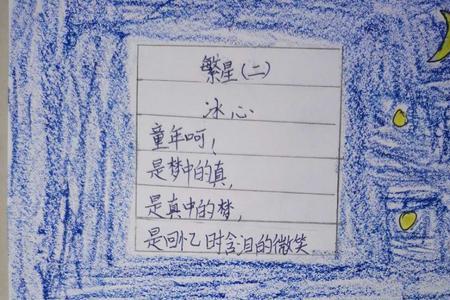 繁星(二)
冰心
童年呵，
是梦中的真，
是真中的梦，
是回忆时含泪的微笑